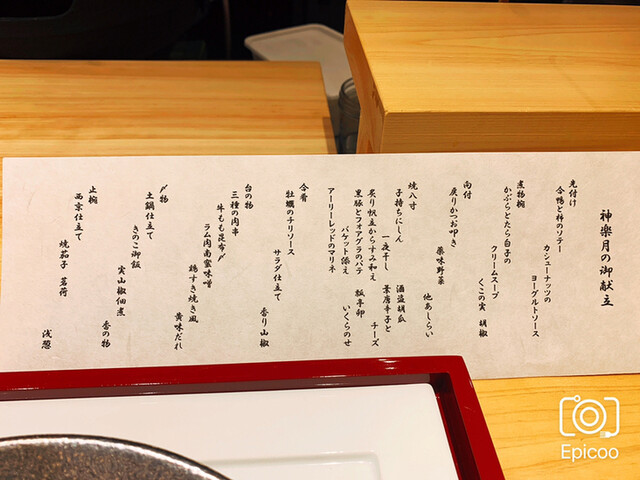 神楽月の御献立
先付け
合鴨と柿のソテー
カシューナッツの
ヨーグルトソース
煮物椀
かぶらとたら白子の
クリームスープ
くこの実 胡椒
向付
戻りかつお叩き
薬味野菜
他あしらい
焼八寸
子持ちにしん
一夜干し
酒盗胡瓜
炙り帆立からすみ和え
葉唐辛子と
チーズ
黒豚とフォアグラのパテ
バケット添え
飯平卵
いくらのせ
アーリーレッドのマリネ
合肴
牡蠣のチリソース
サラダ仕立て
香り山椒
台の物
三種の肉串
牛もも昆布〆
ラム肉南蛮味噌
鶏すき焼き風
黄味だれ
〆物
土鍋仕立て
きのこ御飯
実山椒佃煮
香の物
止椀
西京仕立て
焼茄子 茗荷
浅葱
Epicoo